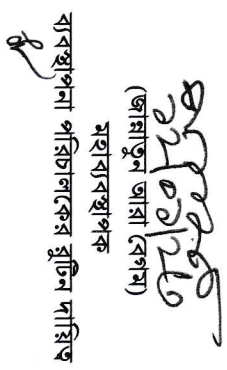 (জান্নাতুন তারা বেগম)
মহাব্যবস্থাপক
ব্যবস্থাপনা পরিচালকের রুটিন দায়িত্ব